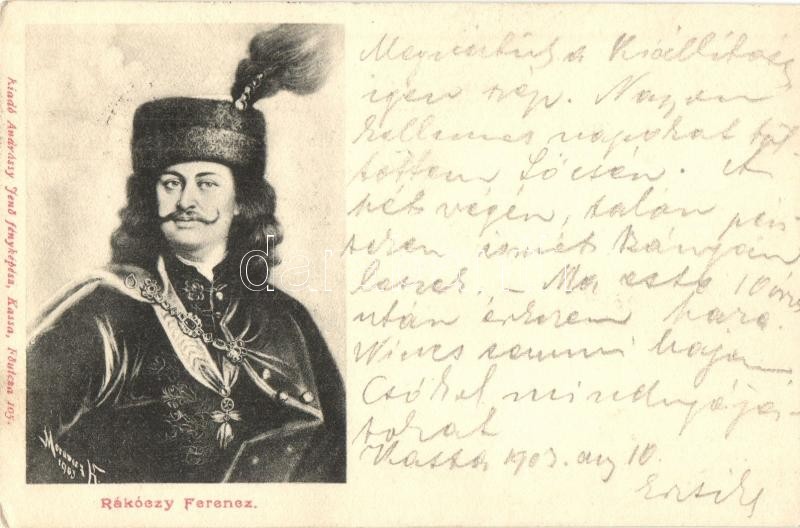 Kiadó Andrássy Jenő fényképész, Kassa, Főutcza 105.
Rákóczy Ferencz.
1903
a Kiállítás
igen szép. Nagyon
kellemes napokat töl-
töttem Lőcsén. A
hét végén, talán pén-
teken ismét Bányán
leszek. – Ma este 10 óra
után érkezem haza.
Nincs semmi bajom
Csókol mindnyájá-
tokat
Kassa 1903. aug 10.